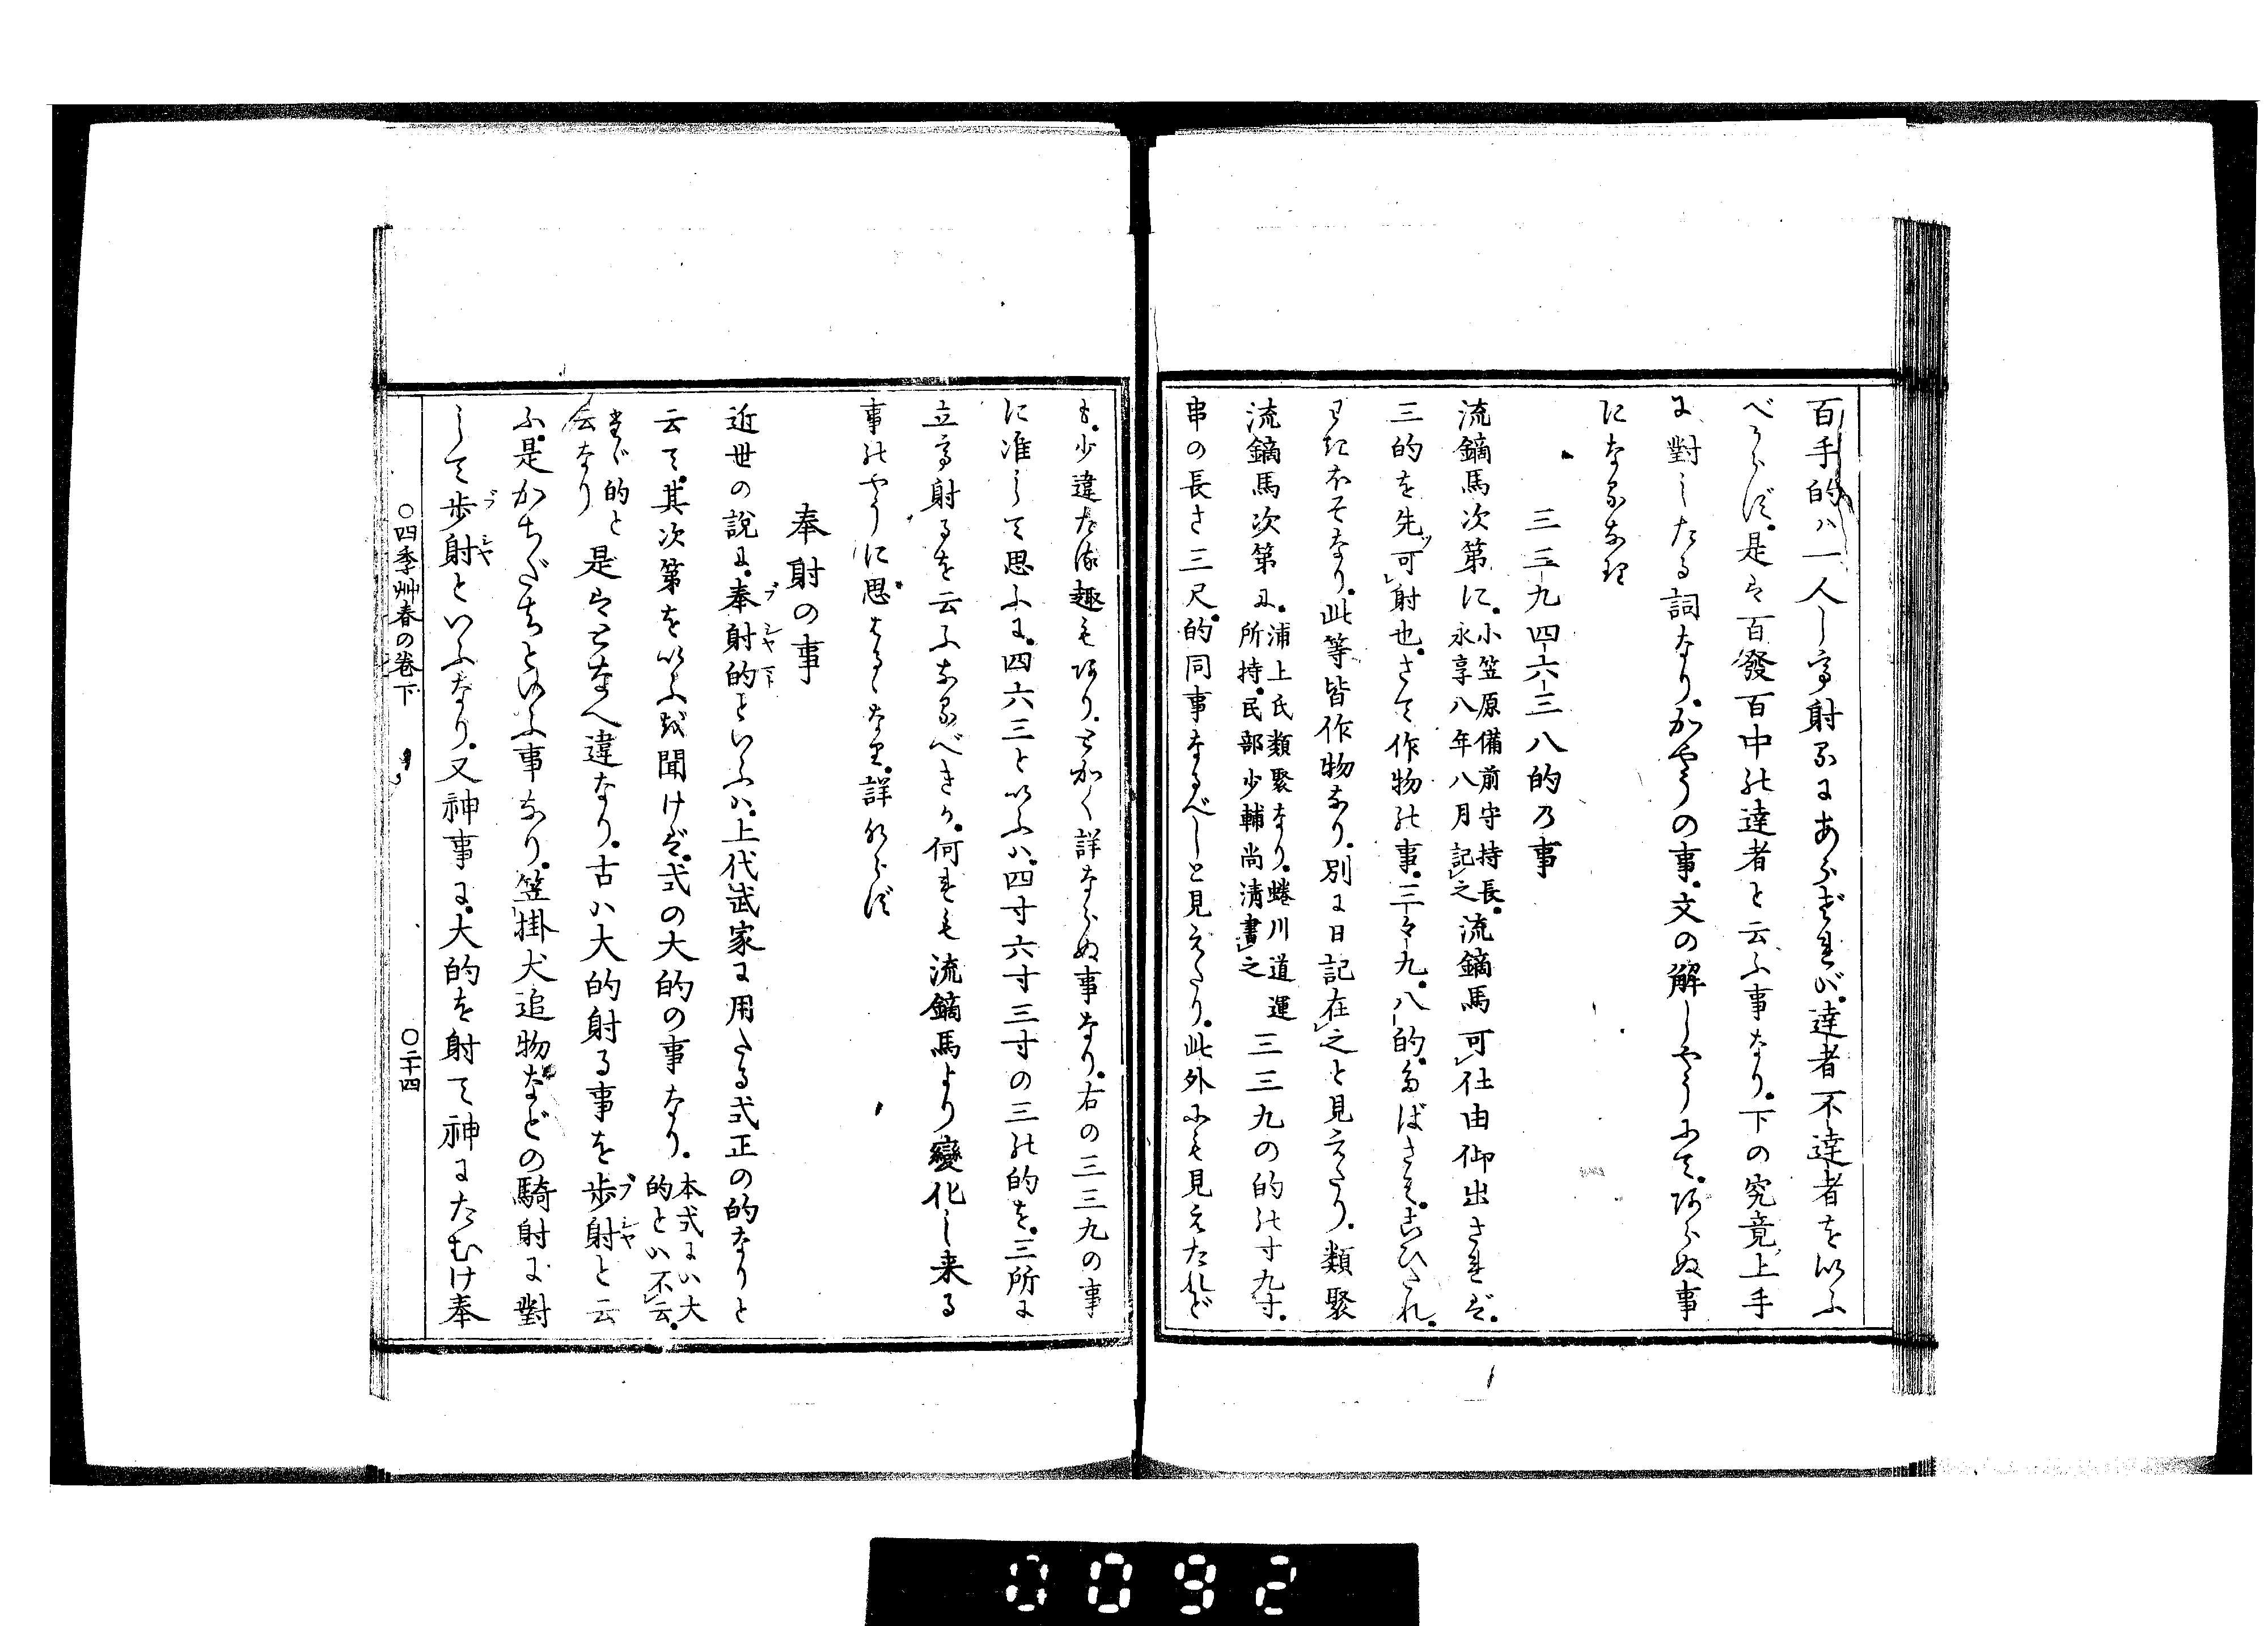 百手的ハ一人して射るにあらざれば。達者不達者をいふ
べからず。是は百發百中の達者と云ふ事なり。下の究竟上手
に對したる詞なり。かやうの事。文の解しやうにて。あらぬ事
になるなり
三三九四六三八的乃事
流鏑馬次第に。小笠原備前守持長。
永享八年八月記之
流鏑馬可仕由御出さまざ。
三的を先ッ可射也。さて作物の事。三々九。八的。
此等皆作物なり。別に日記在之と見えたり。類聚
流鏑馬次第に。浦上氏類聚なり。蜷川道運
所持。民部少輔尚清書之
三三九の的の寸九寸。
串の長さ三尺。的同事なるべしと見えたり。此外にも見えたれど
も。少違たる趣もあり。とかく詳ならぬ事なり。右の三三九の事
に准して思ふに。四六三といふハ。四寸六寸三寸の三の的を。三所に
立て射るを云ふなるべきか。何れも流鏑馬より變化し来る
事のやうに思はるゝなり。詳ならず
奉射の事
近世の説に。奉射的といふハ。上代武家に用たる式正の的なりと
云て。其次第をいふを聞けば。式の大的の事なり。
本式にハ大
的とハ不云。
たゞ的と
云なり
是はとなへ違なり。古ハ大的射る事を歩射と云
ふ。是かちだちといふ事なり。笠掛犬追物などの騎射に對
して歩射といふなり。又神事に。大的を射て神にたむけ奉
○四季艸春の巻下
○二十四
0092